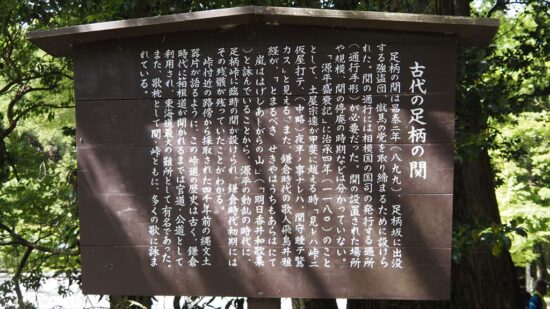 古代の足柄の関
足柄の関は昌泰二年（八九九）足柄坂に出没
する強盗団、僦馬の党を取り締まるために設けら
れた。関の通行には相模国の国司の発行する過所
（通行手形）が必要だった。関の設置された場所
や規模、関の停廃の時期などは分かっていない。
「源平盛衰記」に治承四年（一一八〇）のこと
として、土屋宗遠が甲斐に超える時「見レハ峠ニ
仮屋打テ、（中略）夜半ノ事ナレハ、関守睡テ驚
カス」と見える。また、鎌倉時代の歌人飛鳥井雅
経が、「とまるべき せきやはうちもあらはにて
嵐ははげしあしがらの山」（「明日香井和歌集
」）と詠んでいることから、源平の動乱の時代に
足柄峠に臨時の関が設けられ、鎌倉時代初期には
その残骸が残っていたことがわかる。
峠付近の路傍から採取された四千年前の縄文土
器片が語るように、この峠道の歴史は古く、鎌倉
時代に箱根道が開かれるまでは官道、公道として
利用され、東海道最大の難所として有名であった。
また、歌枕として関、峠ともに、多くの歌に詠ま
れている。